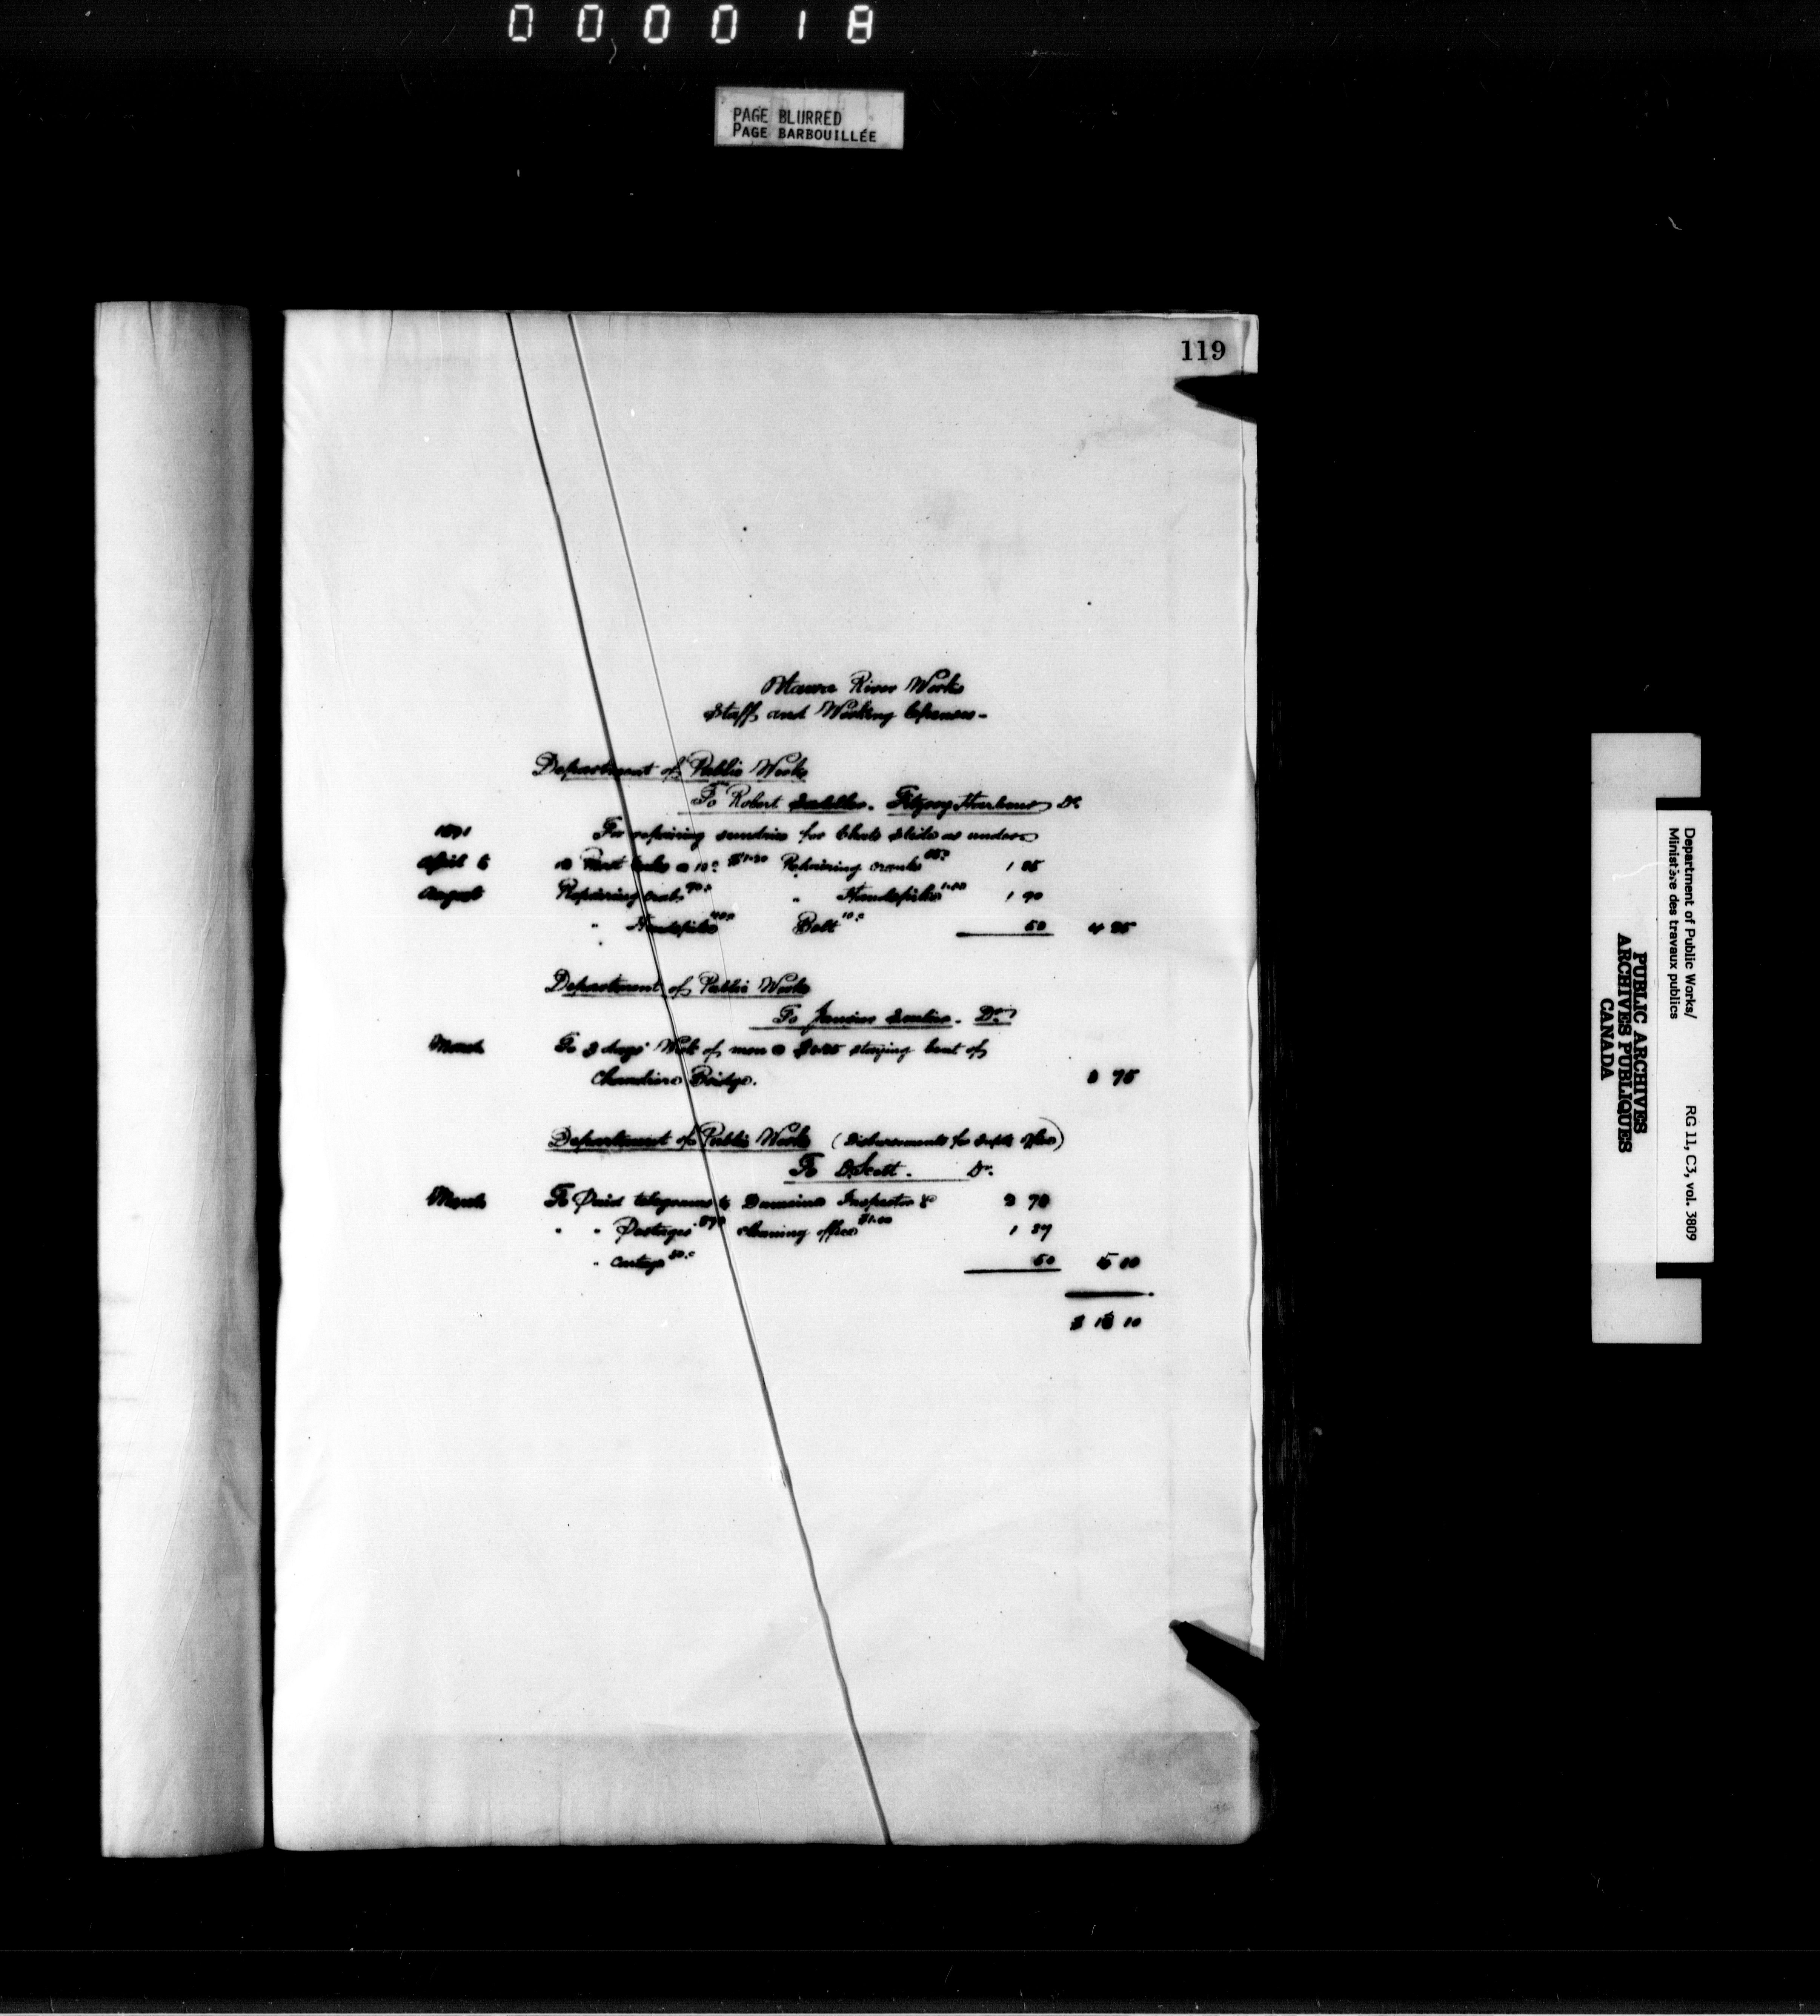 000018
PAGE BLURRED
PAGE BARBOUILLÉE
119
Ottawa River Works
Staff and Working Expenses -
Department of Public Works
To Robert Fitzroy Harbour Dr
1891
For repairing sundries for Chats Slide as under
April 6 @ 10c $1.20 Repairing cranks 1
August Repairing 90c " Handspikes 1.00 1 90
" Handspikes 40c Bolt 10c 50 4
Department of Public Works
To Dr
March To 3 days' Work of men @ $1.25 staying bent of
Chaudiere Bridge. 3 75
Department of Public Works (Disbursements for Supts office)
To D. Scott. Dr.
March To Paid telegrams to Inspector &c 2
" " Postages cleaning office $1.00 1 37
" Cartage 50c 50 5 10
$ 10
Department of Public Works/
Ministère des travaux publics
RG 11, C3, vol. 3809
PUBLIC ARCHIVES
ARCHIVES PUBLIQUES
CANADA